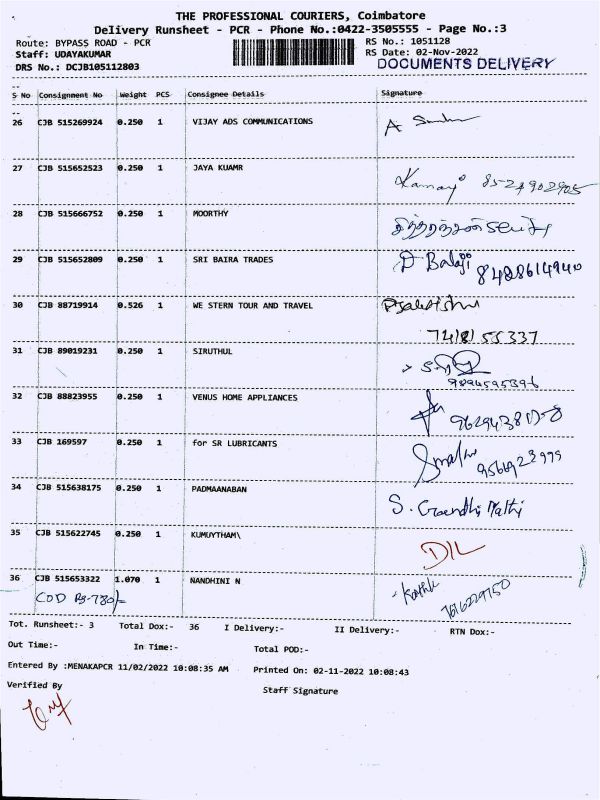 THE PROFESSIONAL COURIERS, Coimbatore
Delivery Runsheet - PCR - Phone No.:0422-3505555 - Page No.:3
Route: BYPASS ROAD - PCR RS No.: 1051128
Staff: UDAYAKUMAR RS Date: 02-Nov-2022
DRS No.: DCJB105112803 DOCUMENTS DELIVERY
S No Consignment No Weight PCS Consignee Details Signature
26 CJB 515269924 0.250 1 VIJAY ADS COMMUNICATIONS A
27 CJB 515652523 0.250 1 JAYA KUAMR
28 CJB 515666752 0.250 1 MOORTHY
29 CJB 515652809 0.250 1 SRI BAIRA TRADES D Balaji
8428614940
30 CJB 88719914 0.526 1 WE STERN TOUR AND TRAVEL
7418155337
31 CJB 89019231 0.250 1 SIRUTHUL
9894595396
32 CJB 88823955 0.250 1 VENUS HOME APPLIANCES
33 CJB 169597 0.250 1 for SR LUBRICANTS
9566923999
34 CJB 515638175 0.250 1 PADMAANABAN S. Gandhi Mathi
35 CJB 515622745 0.250 1 KUMUYTHAM\ D/L
36 CJB 515653322 1.070 1 NANDHINI N - Karthik
COD Rs-780/- 7616229750
Tot. Runsheet:- 3 Total Dox:- 36 I Delivery:- II Delivery:- RTN Dox:-
Out Time:- In Time:- Total POD:-
Entered By :MENAKAPCR 11/02/2022 10:08:35 AM Printed On: 02-11-2022 10:08:43
Verified By Staff Signature